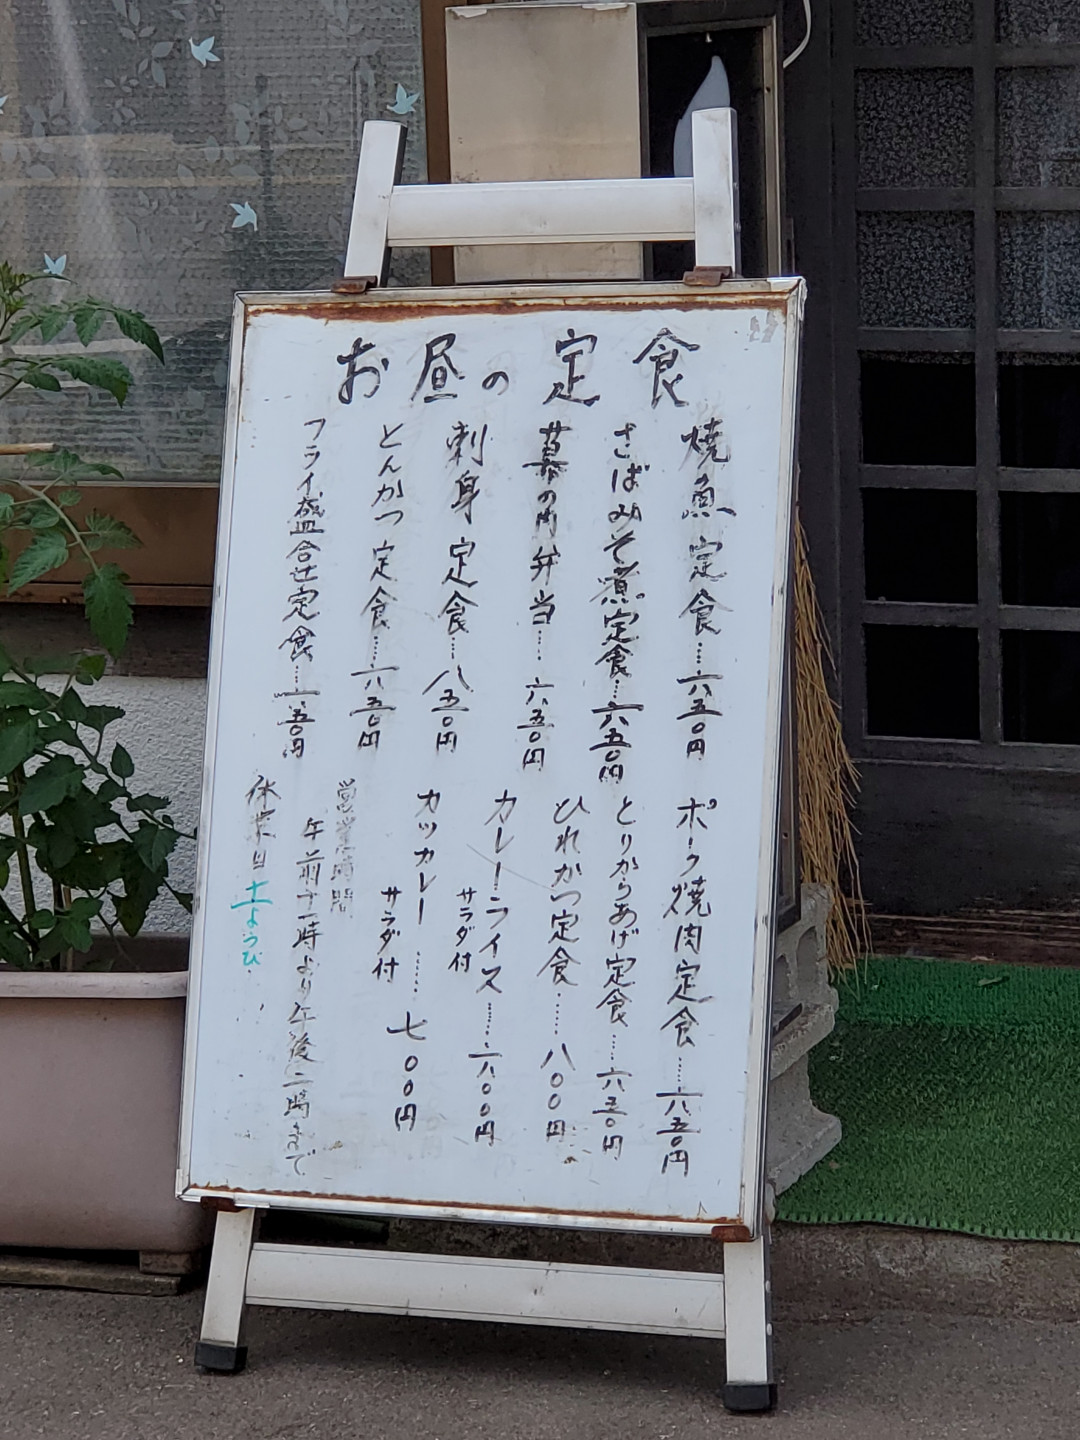 お昼の定食
焼魚定食……六五〇円
さばみそ煮定食……六五〇円
幕の内弁当……六五〇円
刺身定食……八五〇円
とんかつ定食……六五〇円
フライ盛合せ定食……
ポーク焼肉定食……六五〇円
とりからあげ定食……六五〇円
ひれかつ定食……八〇〇円
カレーライス……六〇〇円
サラダ付
カツカレー……七〇〇円
サラダ付
営業時間
午前十一時より午後二時まで
休業日土ようび